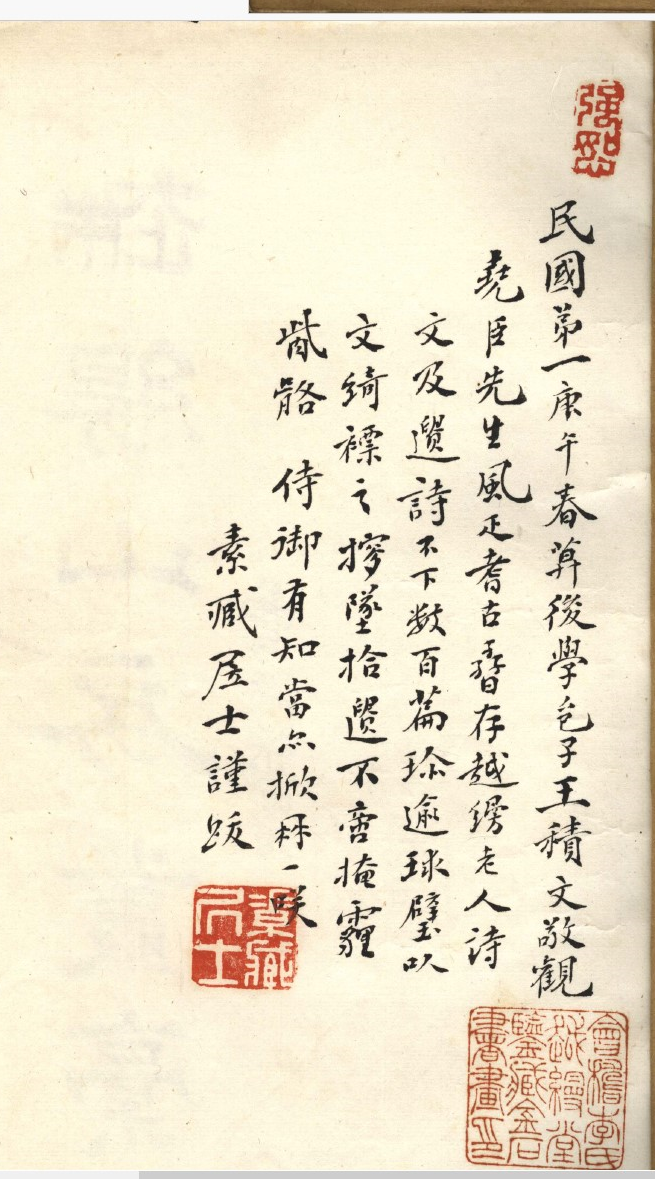 强恕
民國第一庚午春後學子王積文敬觀
堯臣先生風疋耆古存越縵老人詩
文及遺詩不下數百篇珎逾球璧以
文綺褾之墜拾遺不啻掩霾
胔骼 侍御有知當亦掀冄一咲
素臧居士謹跋
素臧
居士
會稽李氏
越縵堂
鑒藏金石
書畫印